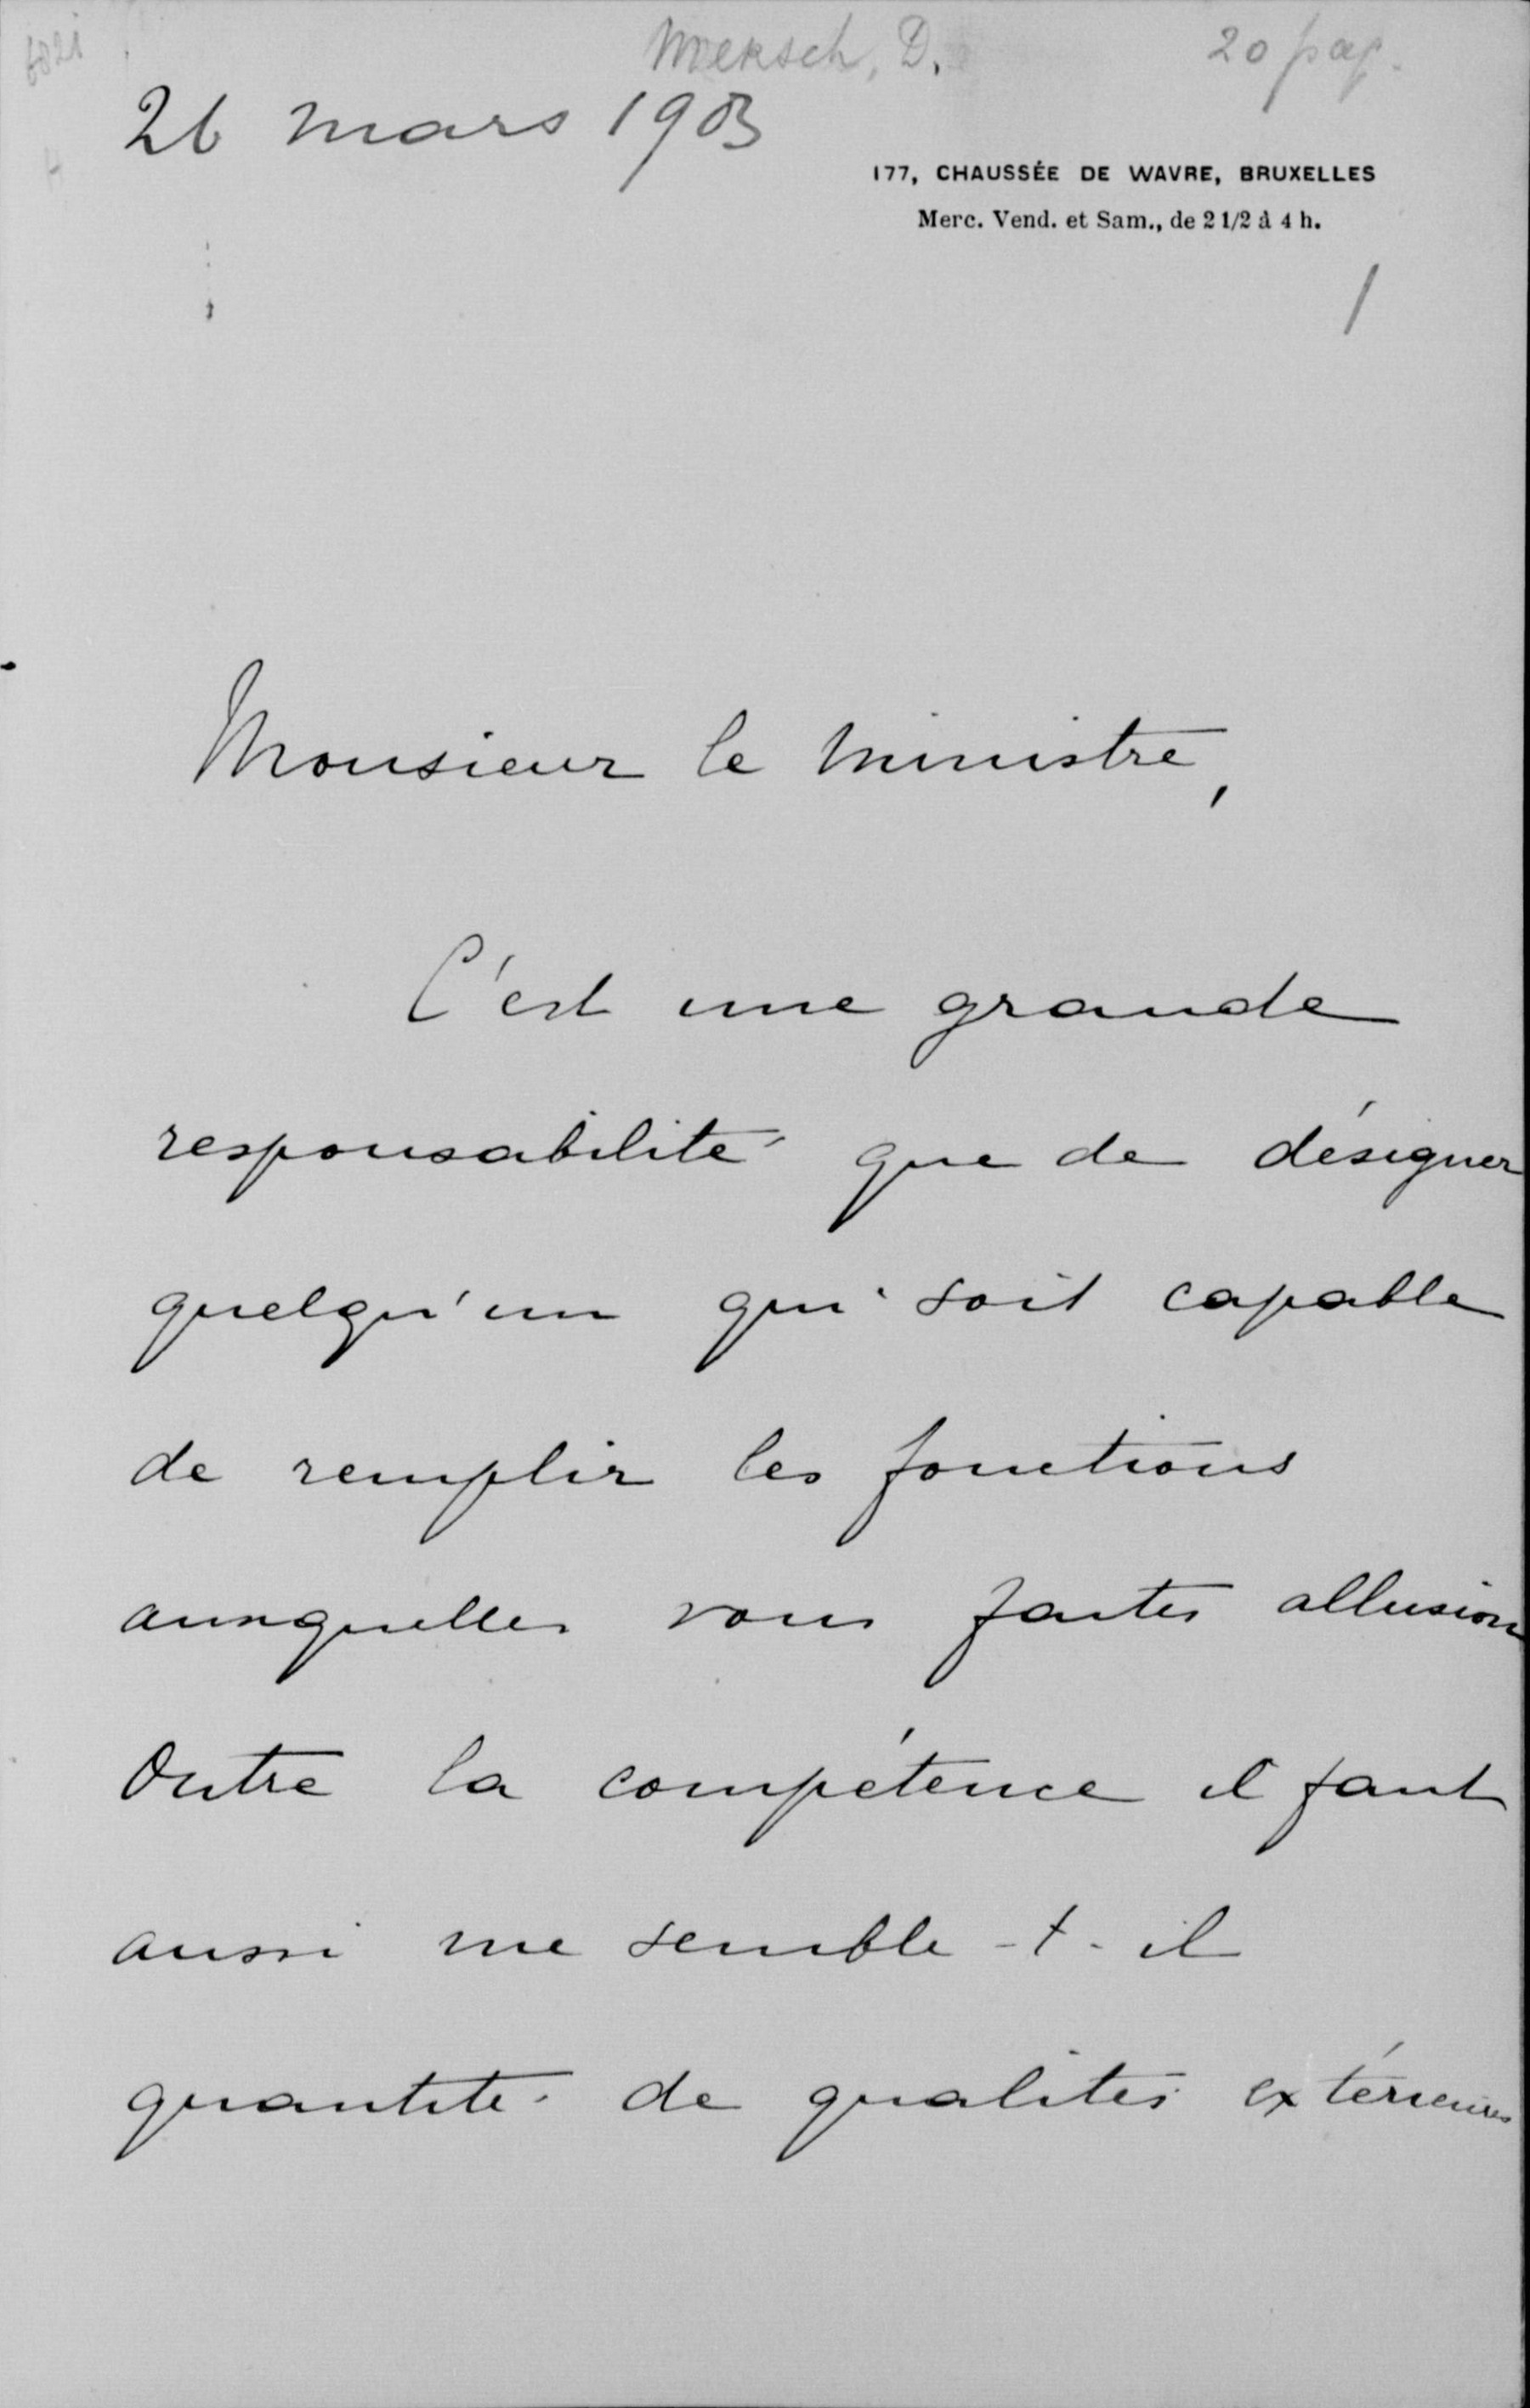 6821
Mersch, D.
20 pag.
26 mars 1903
177, CHAUSSÉE DE WAVRE, BRUXELLES
Merc. Vend. et Sam., de 2 1/2 à 4 h.
1
Monsieur le Ministre,
C'est une grande
responsabilité que de désigner
quelqu'un qui soit capable
de remplir les fonctions
auxquelles vous faites allusion
Outre la compétence il faut
aussi me semble-t-il
quantité de qualités extérieures